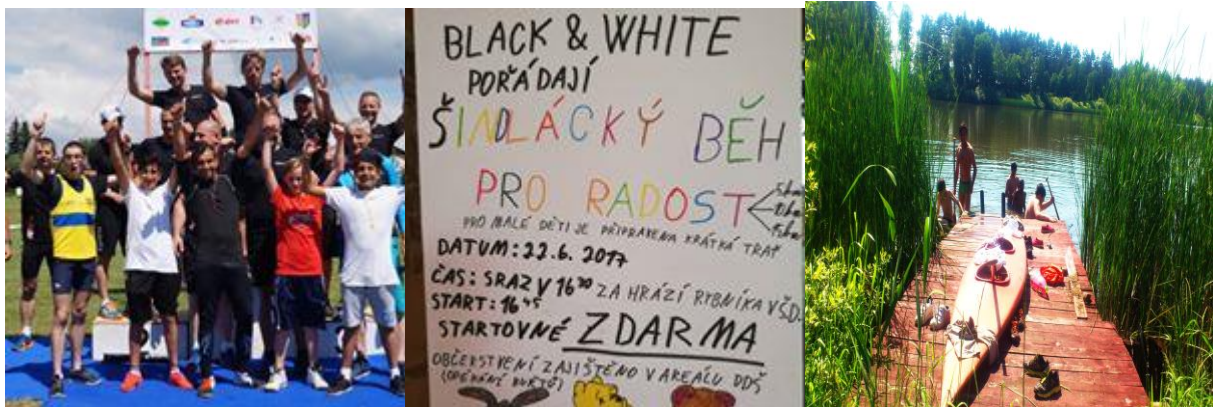 BLACK & WHITE
POŘÁDAJÍ
ŠINDLÁCKÝ BĚH
PRO RADOST
PRO MALÉ DĚTI JE PŘIPRAVENA KRÁTKÁ TRAŤ
DATUM: 22.6. 2017
ČAS: SRAZ V 16³⁰ ZA HRÁZÍ RYBNÍKA V Š.D.
START: 16⁴⁵
STARTOVNÉ ZDARMA
OBČERSTVENÍ ZAJIŠTĚNO V AREÁLU DDŠ
(OPÉKÁNÍ BUŘTŮ)